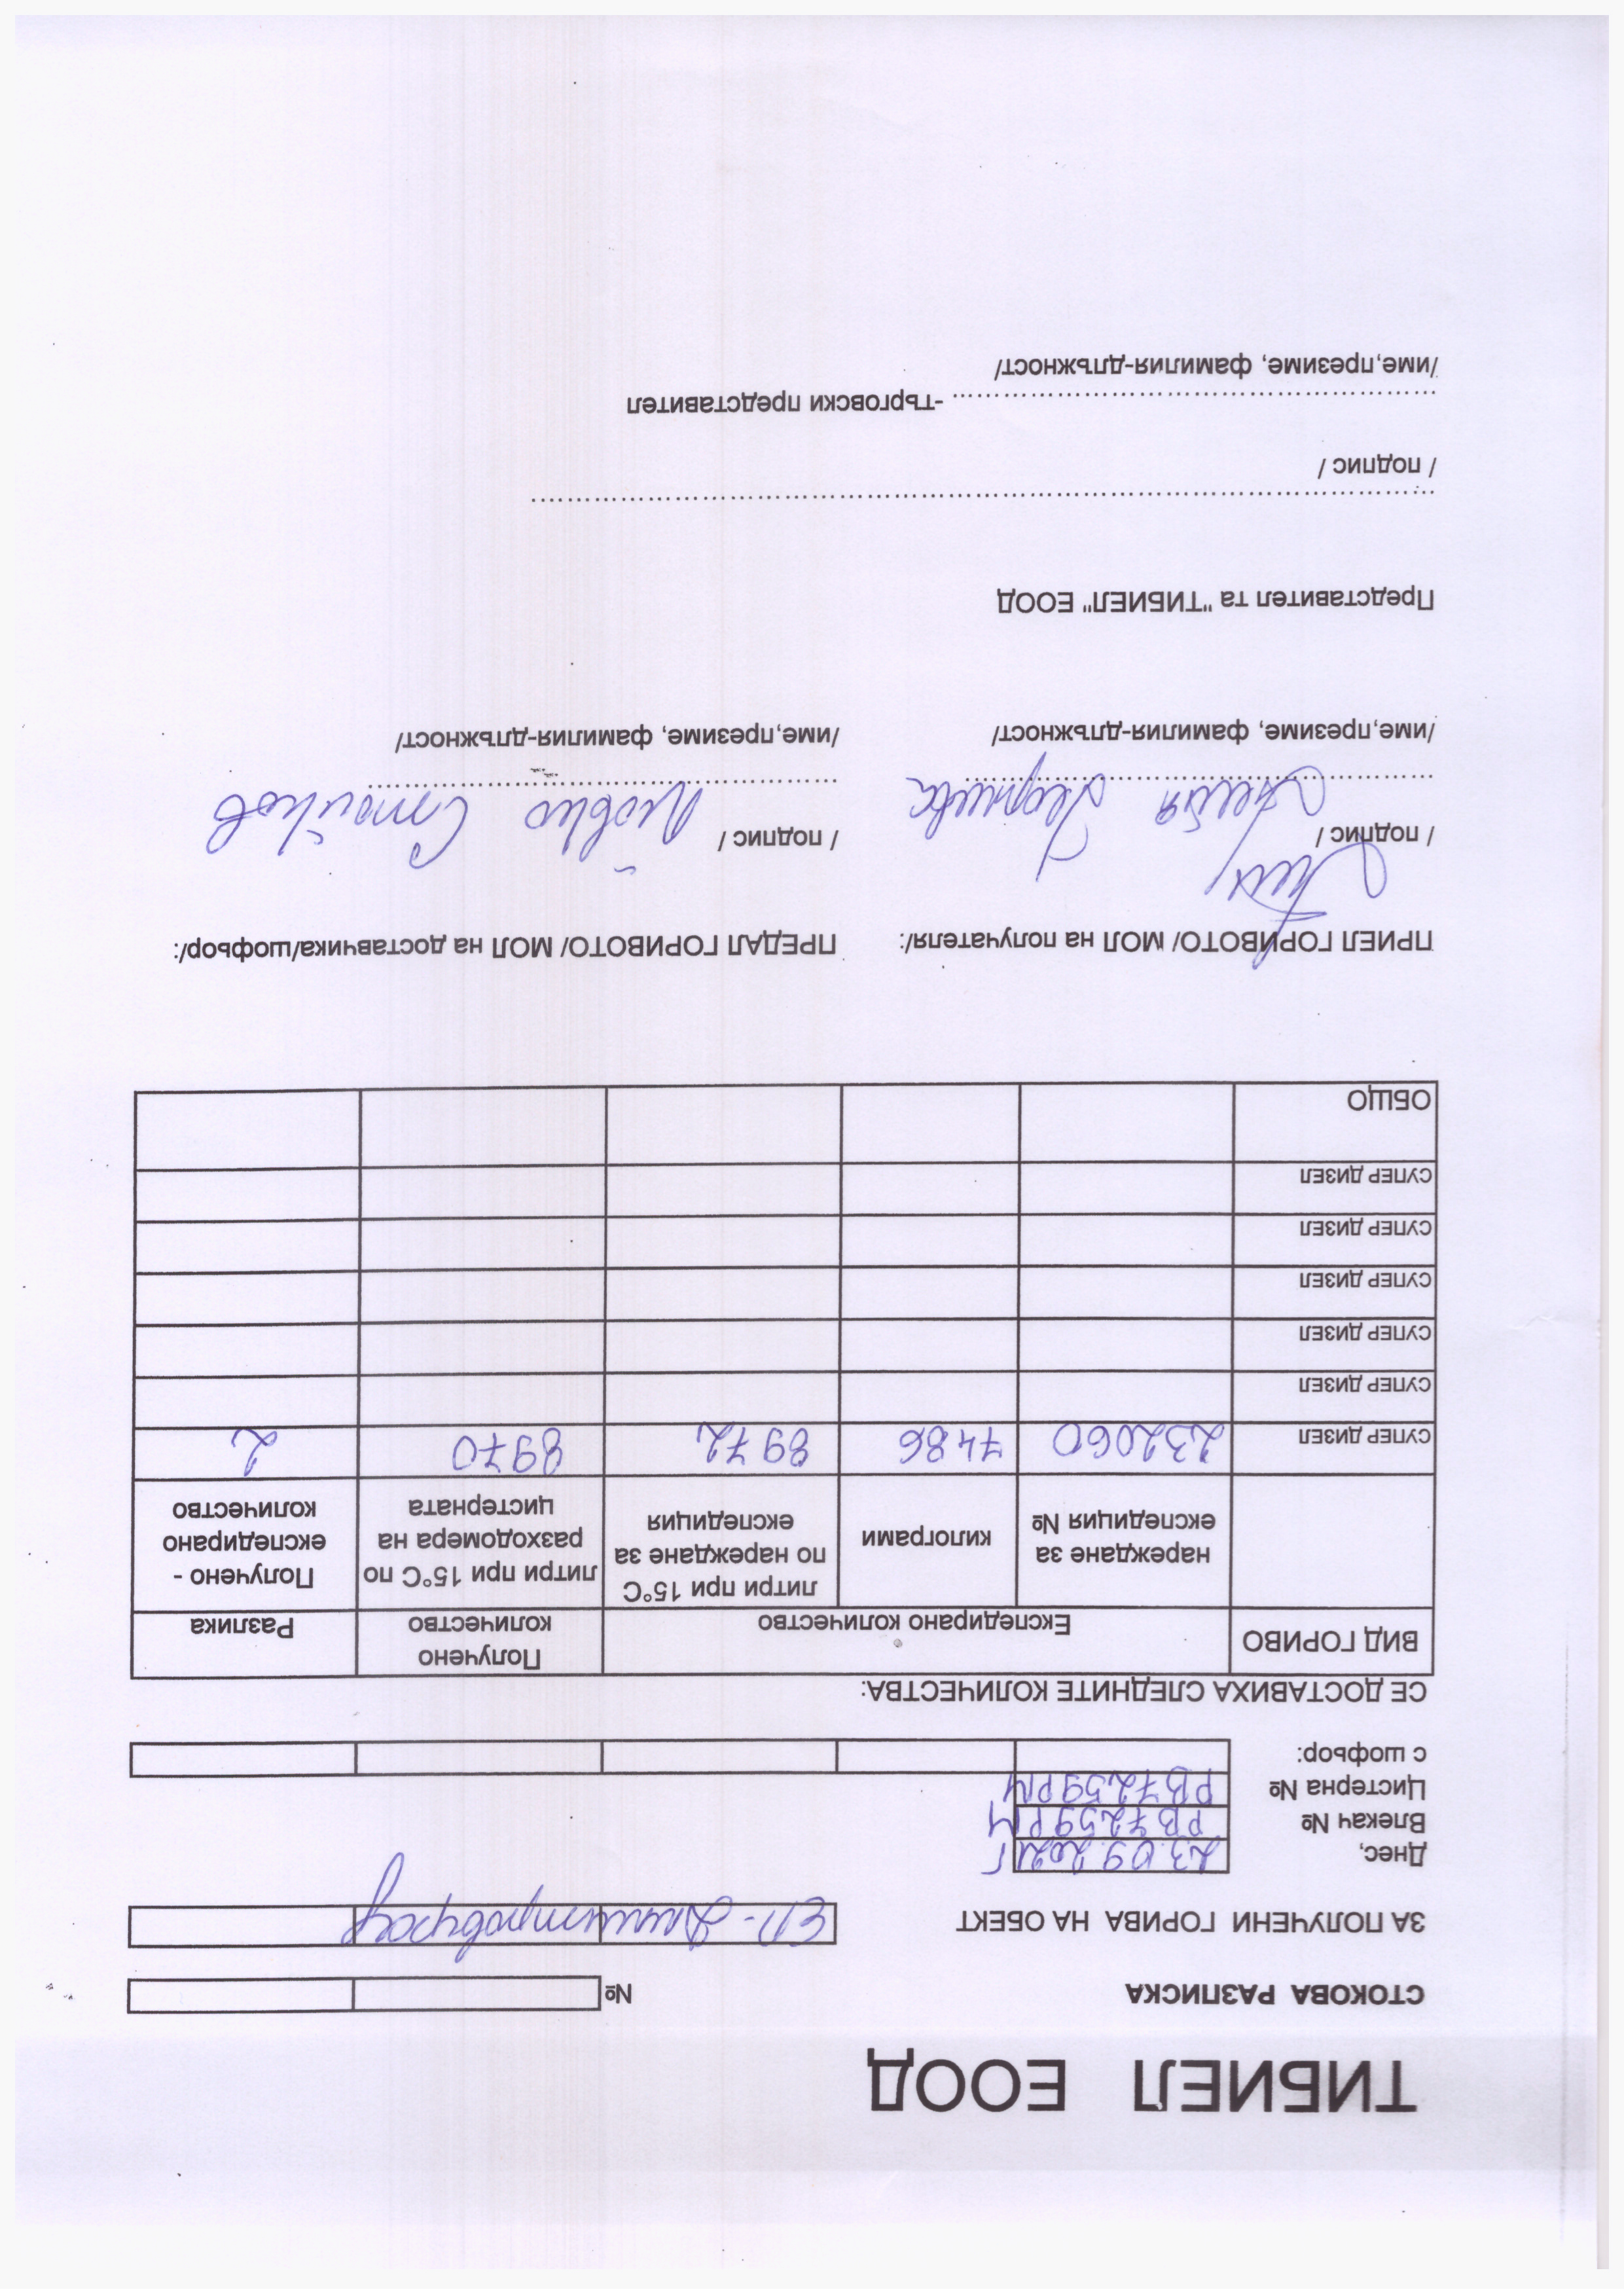 ТИБИЕЛ ЕООД
СТОКОВА РАЗПИСКА №
ЗА ПОЛУЧЕНИ ГОРИВА НА ОБЕКТ ЕП - Димитровград
Днес, 23.09.2021г
Влекач № РВ7259РМ
Цистерна № РВ7259РМ
с шофьор:
СЕ ДОСТАВИХА СЛЕДНИТЕ КОЛИЧЕСТВА:
ВИД ГОРИВО Експедирано количество Получено количество Разлика
нареждане за експедиция № килограми литри при 15°С по нареждане за експедиция литри при 15°С по разходомера на цистерната Получено - експедирано количество
СУПЕР ДИЗЕЛ 232060 7486 8972 8970 2
СУПЕР ДИЗЕЛ
СУПЕР ДИЗЕЛ
СУПЕР ДИЗЕЛ
СУПЕР ДИЗЕЛ
СУПЕР ДИЗЕЛ
ОБЩО
ПРИЕЛ ГОРИВОТО/ МОЛ на получателя/: ПРЕДАЛ ГОРИВОТО/ МОЛ на доставчика/шофьор/:
/ подпис / / подпис / Стойков
/име,презиме, фамилия-длъжност/ /име,презиме, фамилия-длъжност/
Представител та "ТИБИЕЛ" ЕООД
/ подпис /
-търговски представител
/име,презиме, фамилия-длъжност/